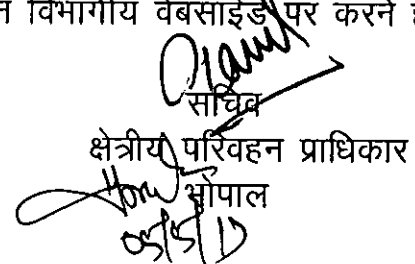 न विभागीय वेबसाईड पर करने ह
सचिव
क्षेत्रीय परिवहन प्राधिकार
भोपाल